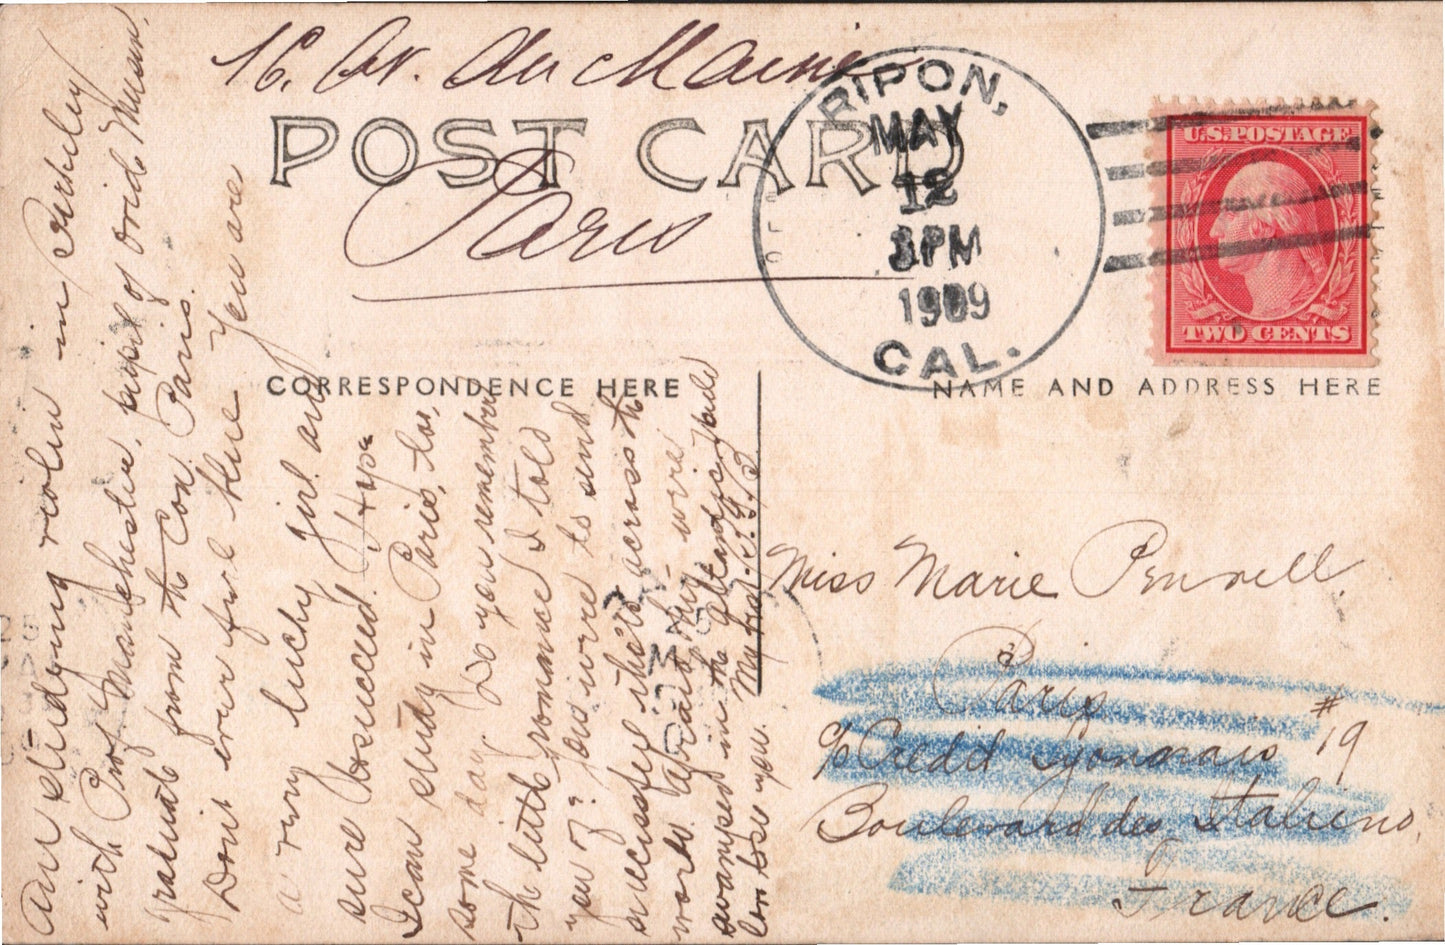 16, Av. du Maine
POST CARD
Paris
RIPON,
MAY
12
PM
1909
CAL.
U.S. POSTAGE
TWO CENTS
CORRESPONDENCE HERE
NAME AND ADDRESS HERE
Am studying violin in Berkeley
with Prof Manchester, pupil of Ovid Musin,
graduate from the Con. Paris.
Dont ever feel blue You are
a very lucky girl and
sure to succeed. Hope
I can study in Paris, too,
some day. Do you remember
the little romance I told
you of? Ans were to send
successful the across the
world. Afraid they were
swamped in the Atlantic. Yours
My love to you.
Miss Marie
Paris
c/o Credit Lyonnais #19
Boulevard des Italiens,
France.